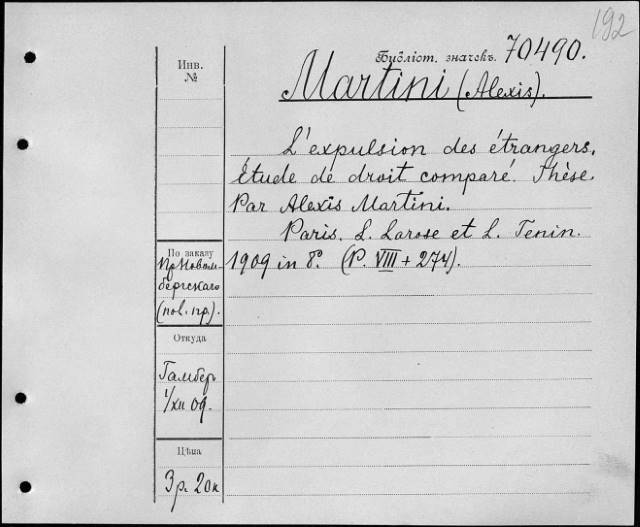 192
Библіот. значекъ. 70490.
Инв.
№
Martini (Alexis).
L'expulsion des étrangers,
Étude de droit comparé. Thèse.
Par Alexis Martini.
Paris. L. Larose et L. Tenin.
1909 in 8°. (P. VIII + 274).
По заказу
Пр. Новом-
бергскаго
(пов. пр).
Откуда
Гамбер
1/XII 09.
Цѣна
3р. 20к